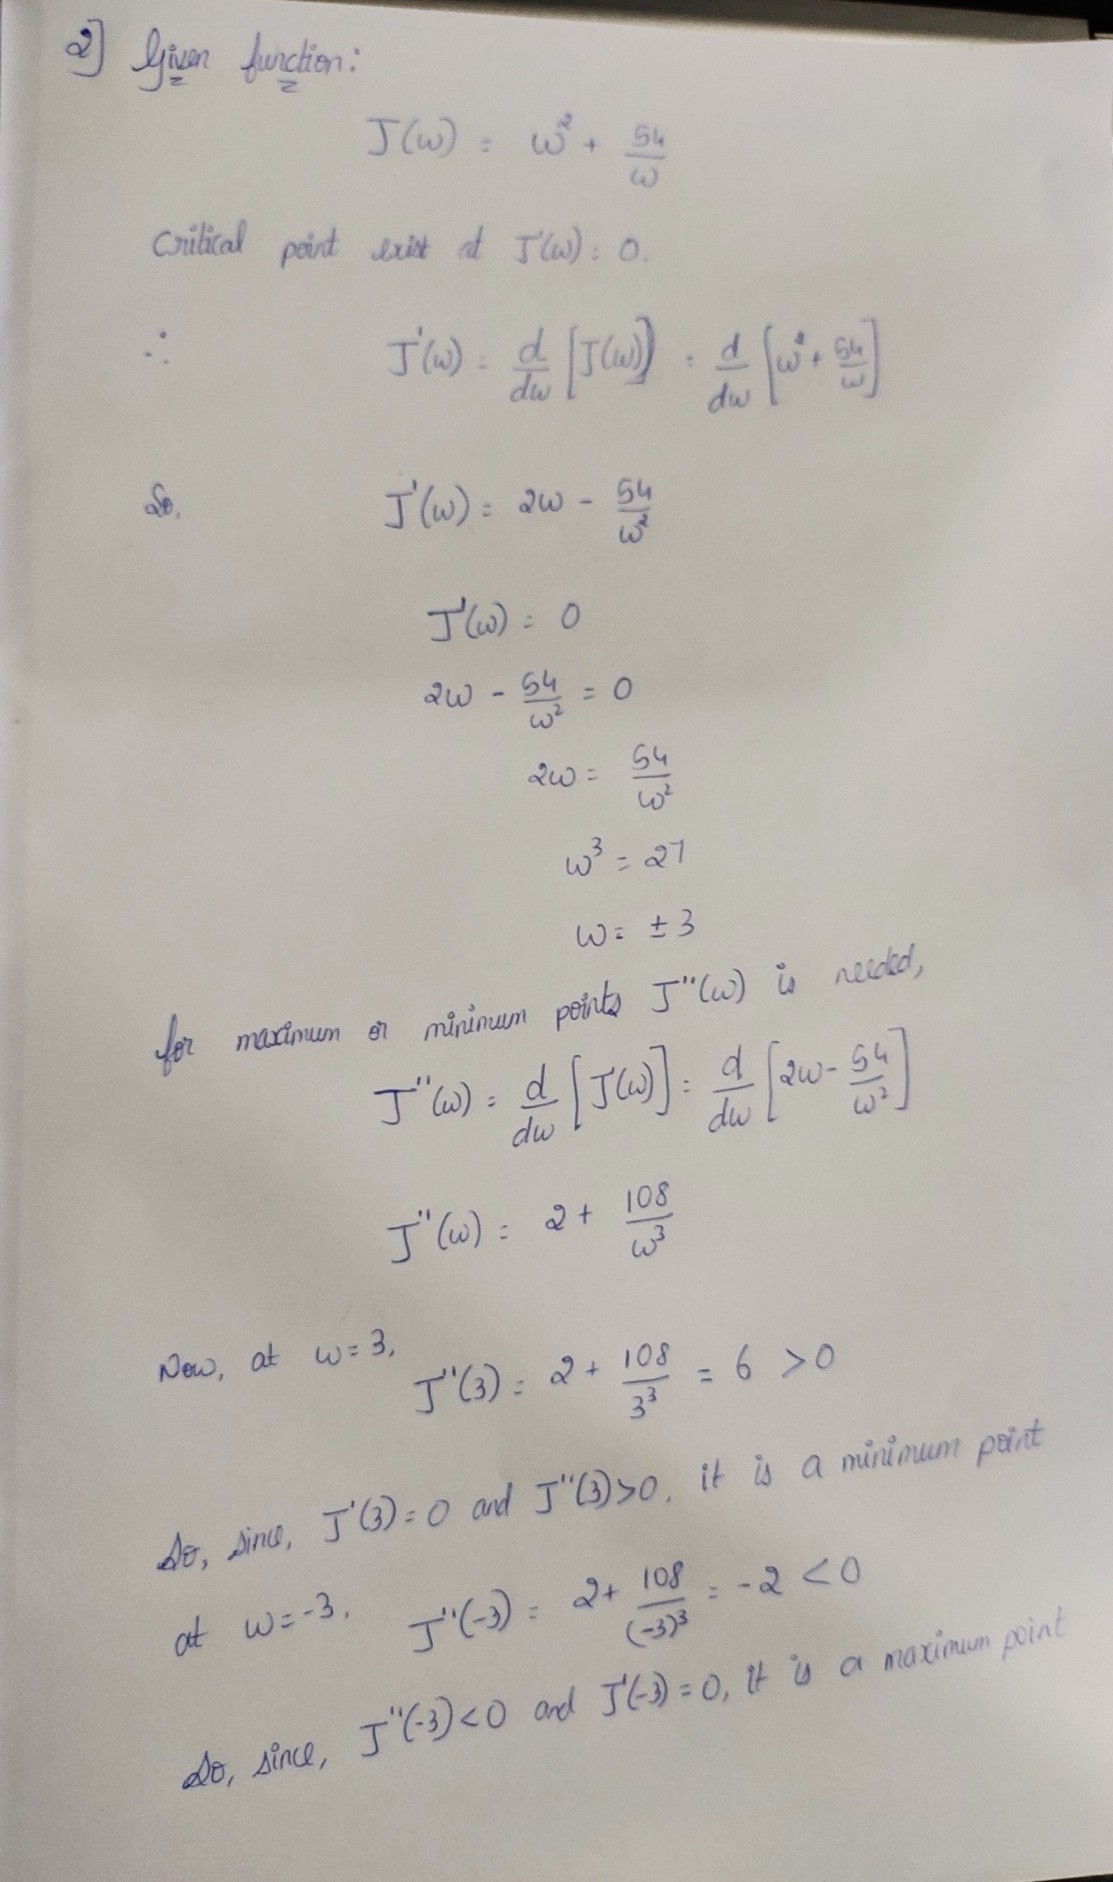 2] Given function:
J(ω) = ω² + 54/ω
Critical point exist at J'(ω) = 0.
∴ J'(ω) = d/dω [J(ω)] = d/dω [ω² + 54/ω]
So, J'(ω) = 2ω - 54/ω²
J'(ω) = 0
2ω - 54/ω² = 0
2ω = 54/ω²
ω³ = 27
ω = ± 3
for maximum or minimum points J''(ω) is needed,
J''(ω) = d/dω [J'(ω)] = d/dω [2ω - 54/ω²]
J''(ω) = 2 + 108/ω³
Now, at ω = 3, J''(3) = 2 + 108/3³ = 6 > 0
So, since, J'(3) = 0 and J''(3) > 0, it is a minimum point
at ω = -3, J''(-3) = 2 + 108/(-3)³ = -2 < 0
So, since, J''(-3) < 0 and J'(-3) = 0, it is a maximum point